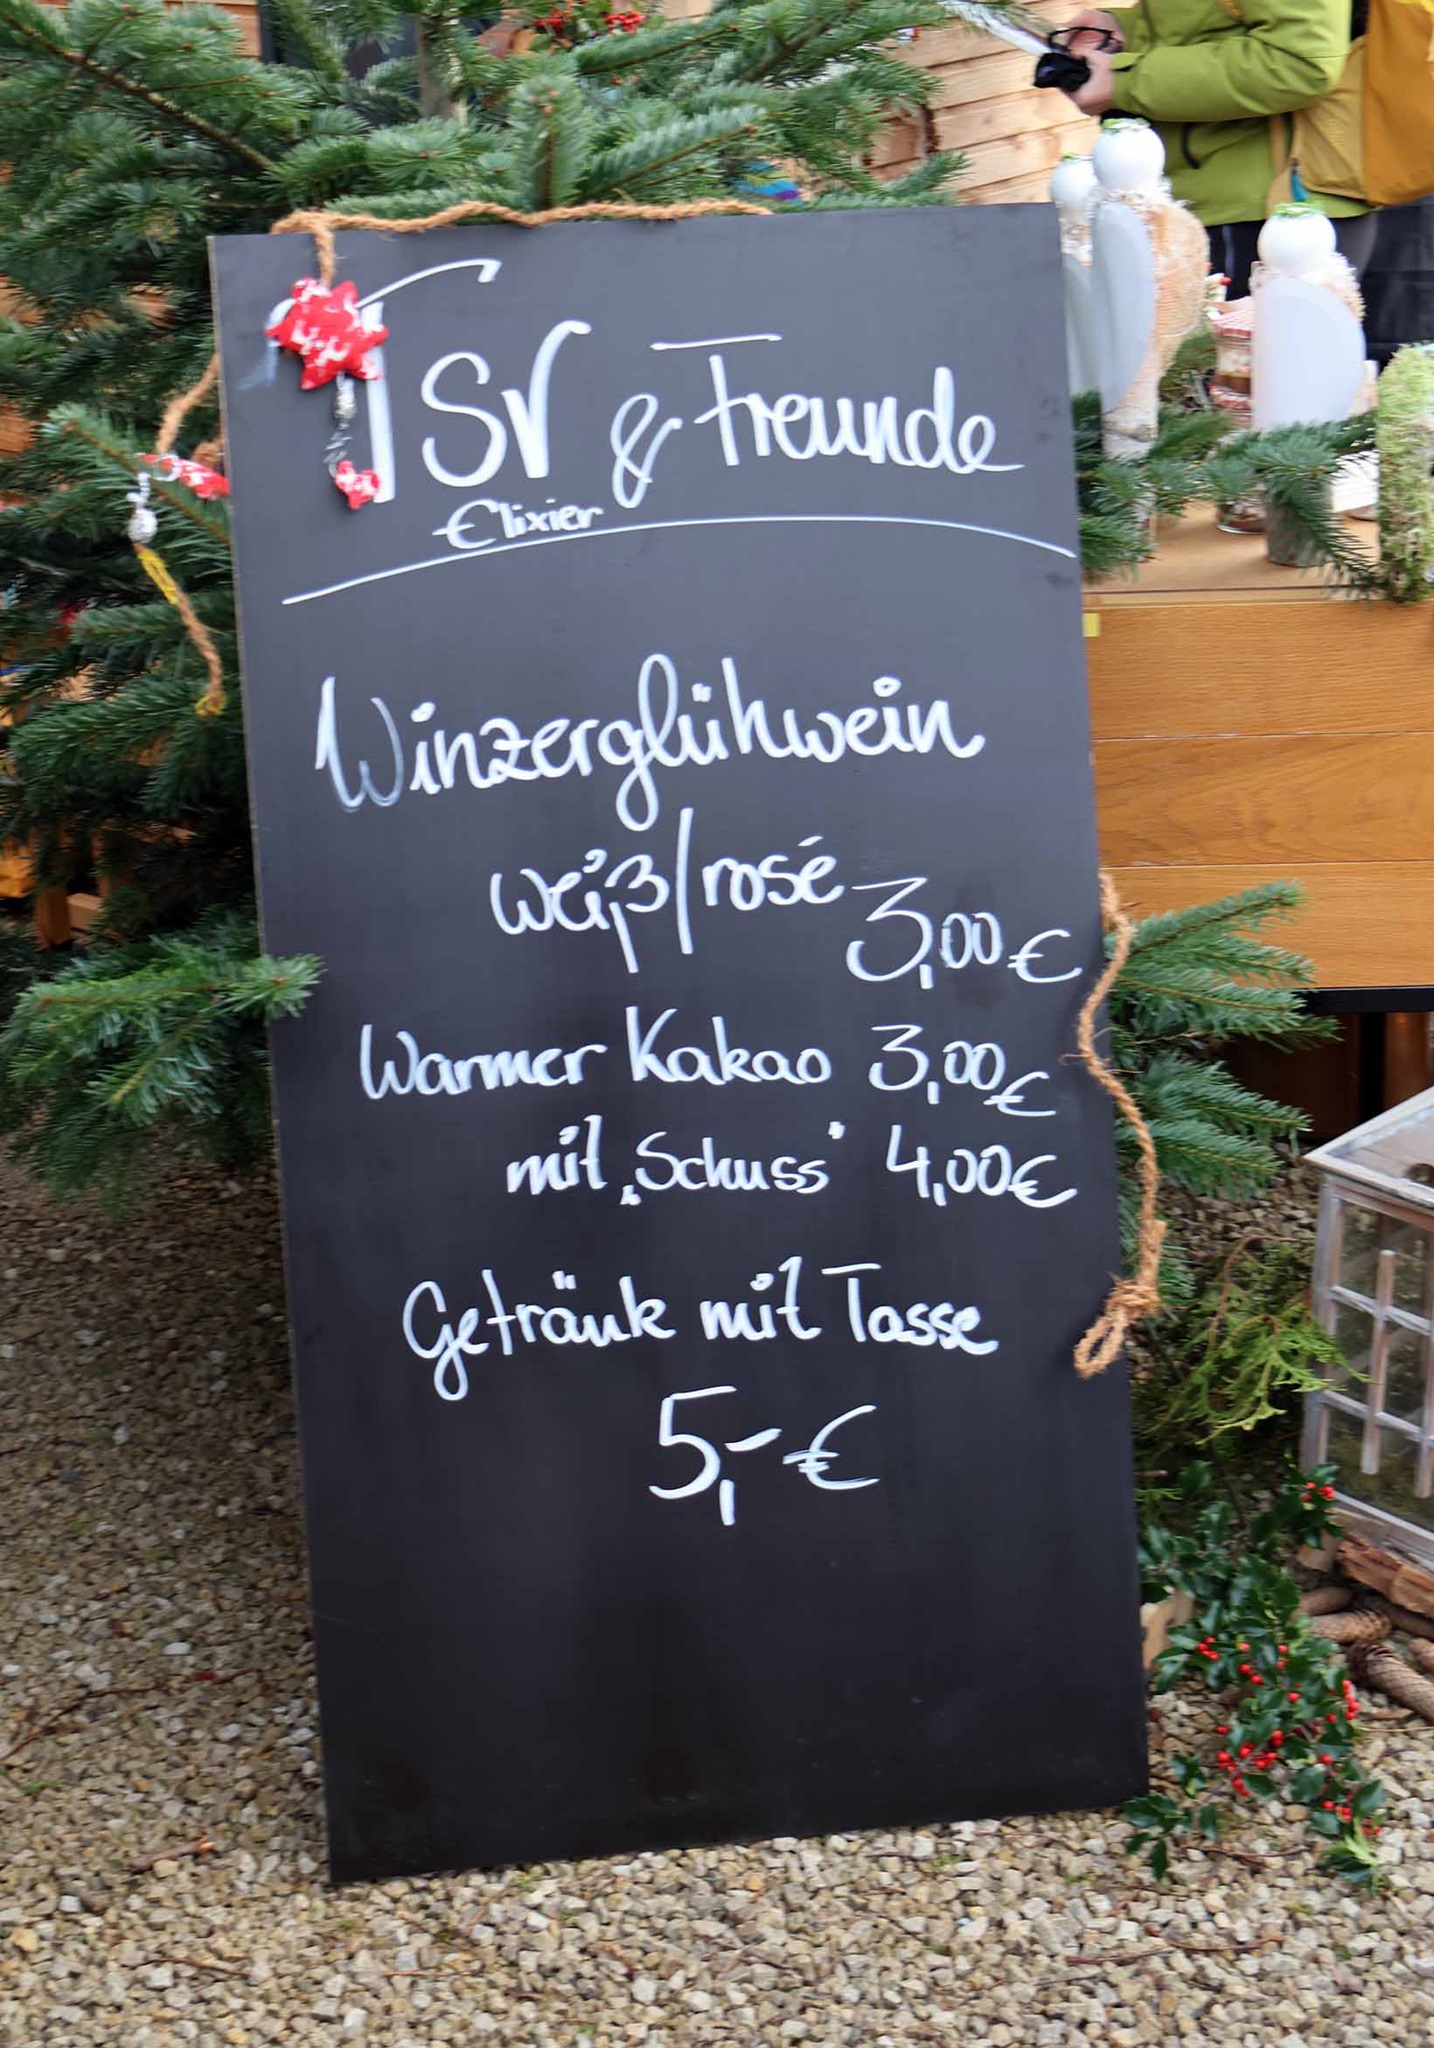 TSV & Freunde
Elixier
Winzerglühwein
weiß/rosé 3,00 €
Warmer Kakao 3,00 €
mit „Schuss" 4,00 €
Getränk mit Tasse
5,- €